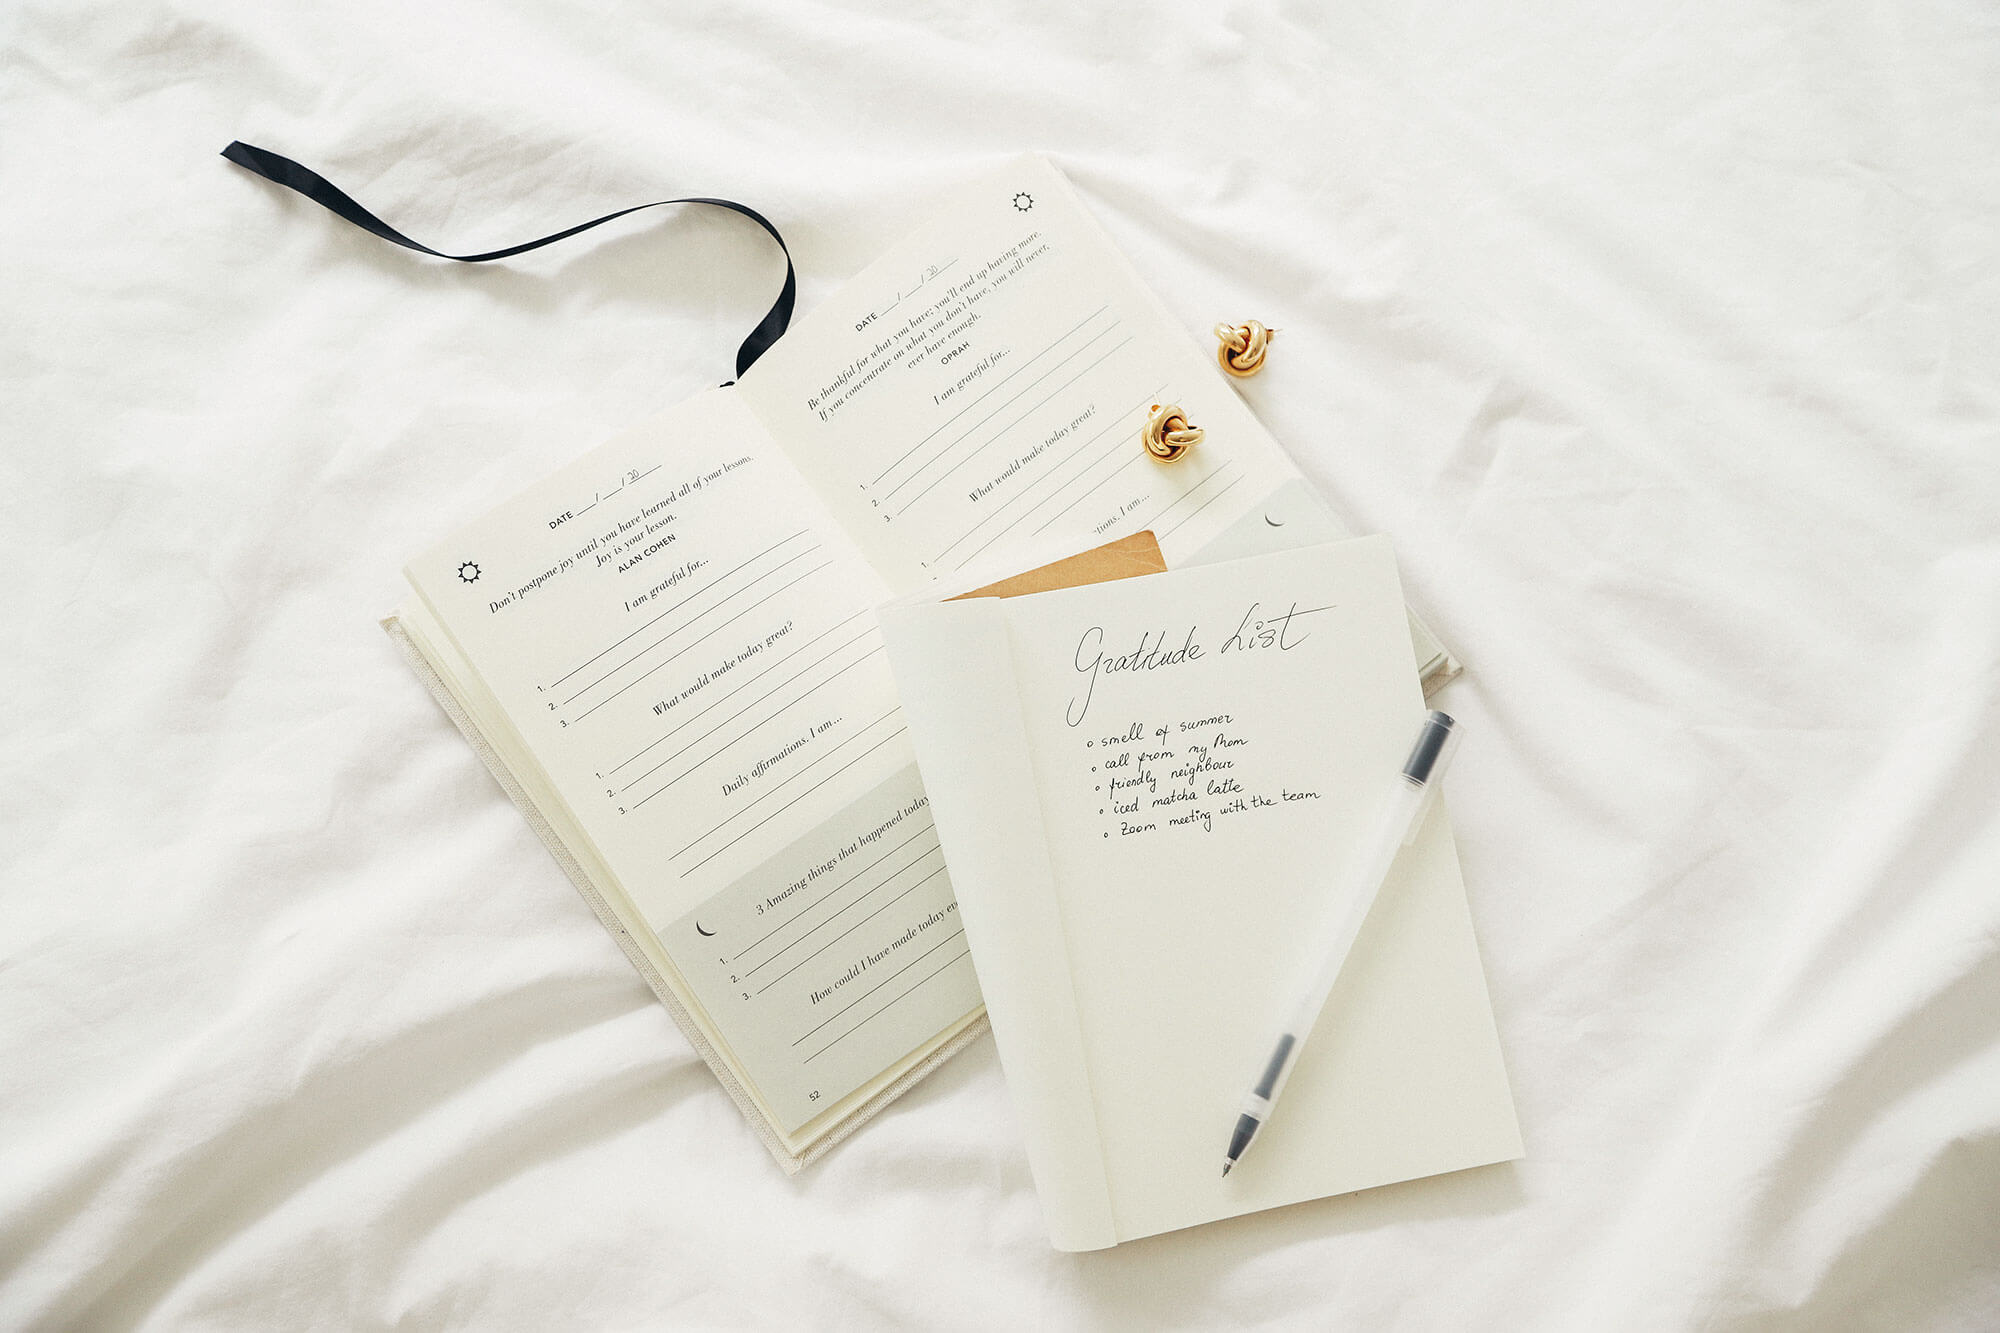 DATE __/__/20__
Don't postpone joy until you have learned all of your lessons.
Joy is your lesson.
ALAN COHEN
I am grateful for...
1.
2.
3.
What would make today great?
1.
2.
3.
Daily affirmations. I am...
3 Amazing things that happened today
1.
2.
3.
How could I have made today
52
DATE __/__/20__
Be thankful for what you have; you'll end up having more.
If you concentrate on what you don't have, you will never,
ever have enough.
OPRAH
I am grateful for...
1.
2.
3.
What would make today great?
1.
2.
I am...
Gratitude List
smell of summer
call from my Mom
friendly neighbour
iced matcha latte
Zoom meeting with the team